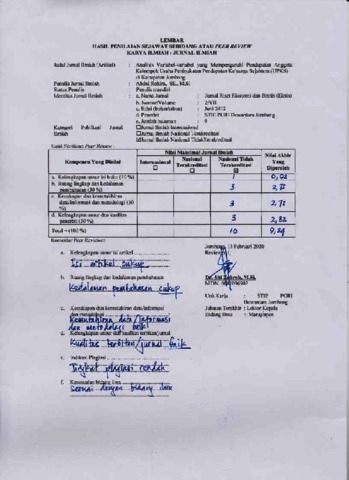 LEMBAR
HASIL PENILAIAN SEJAWAT SEBIDANG ATAU PEER REVIEW
KARYA ILMIAH : JURNAL ILMIAH
Judul Jurnal Ilmiah (Artikel) : Analisis Variabel-variabel yang Mempengaruhi Pendapatan Anggota
Kelompok Usaha Peningkatan Pendapatan Keluarga Sejahtera (UPPKS)
di Kabupaten Jombang
Penulis Jurnal Ilmiah : Abdul Rohim, SE., M.Si
Status Penulis : Penulis mandiri
Identitas Jurnal Ilmiah : a. Nama Jurnal : Jurnal Riset Ekonomi dan Bisnis
b. Nomor/Volume : 2/VII
c. Edisi (bulan/tahun) : Juli 2012
d. Penerbit : STIE PGRI Dewantara Jombang
e. Jumlah halaman : 8
Kategori Publikasi Jurnal Ilmiah : Jurnal Ilmiah Internasional
Jurnal Ilmiah Nasional Terakreditasi
Jurnal Ilmiah Nasional Tidak Terakreditasi
Hasil Penilaian Peer Review :
Komponen Yang Dinilai
Nilai Maksimal Jurnal Ilmiah
Internasional
Nasional Terakreditasi
Nasional Tidak Terakreditasi
Nilai Akhir Yang Diperoleh
a. Kelengkapan unsur isi buku (10 %) 1
b. Ruang lingkup dan kedalaman pembahasan (30 %) 3
c. Kecukupan dan kemutakhiran data/informasi dan metodologi (30 %) 3
d. Kelengkapan unsur dan kualitas penerbit (30 %) 3
Total = (100 %) 10
Komentar Peer Review :
Jombang, Februari 2020
a. Kelengkapan unsur isi artikel
Isi artikel cukup
b. Ruang lingkup dan kedalaman pembahasan
Kedalaman pembahasan cukup
Unit Kerja : STIE PGRI
Dewantara Jombang
Jabatan Terakhir : Lektor Kepala
Bidang Ilmu : Manajemen
c. Kecukupan dan kemutakhiran data/informasi dan metodologi
Kemutakhiran data/informasi
dan metodologi baik
d. Kelengkapan unsur dan kualitas terbitan/jurnal
Kualitas terbitan/jurnal baik
e. Indikasi Plagiasi
Tingkat plagiasi rendah
f. Kesesuaian bidang ilmu
Sesuai dengan bidang ilmu